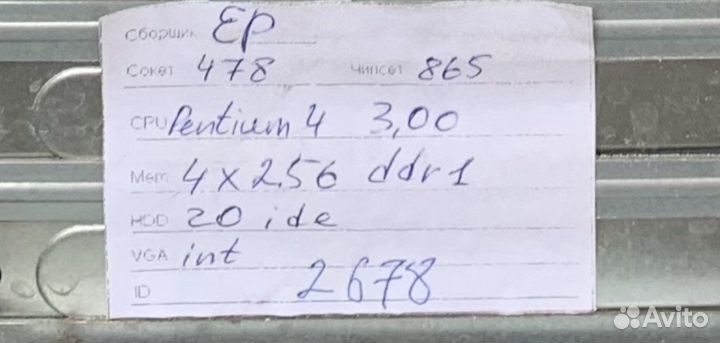 Сборщик ЕР
Сокет 478 Чипсет 865
CPU Pentium 4 3,00
Mem 4x256 ddr1
HDD 20 ide
VGA int
ID 2678
Avito